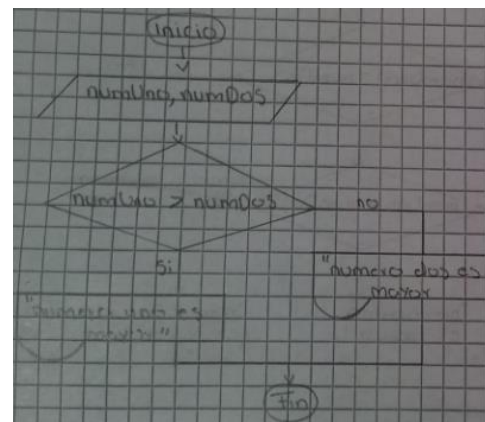 inicio
numUno, numDos
numUno > numDos
no
si
"numero dos es
mayor
"numero uno es
mayor"
Fin